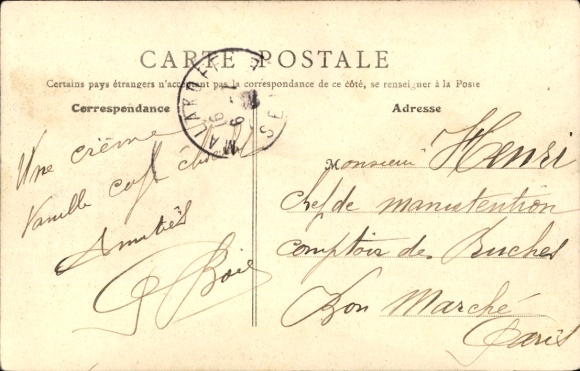 CARTE POSTALE
Certains pays étrangers n'acceptent pas la correspondance de ce côté, se renseigner à la Poste
Correspondance
Adresse
MALAKOFF
SEINE
Une crême
Vanille café chocolat
Amitiés
Monsieur Henri
chef de manutention
comptoir des Ruches
Bon Marché
Paris